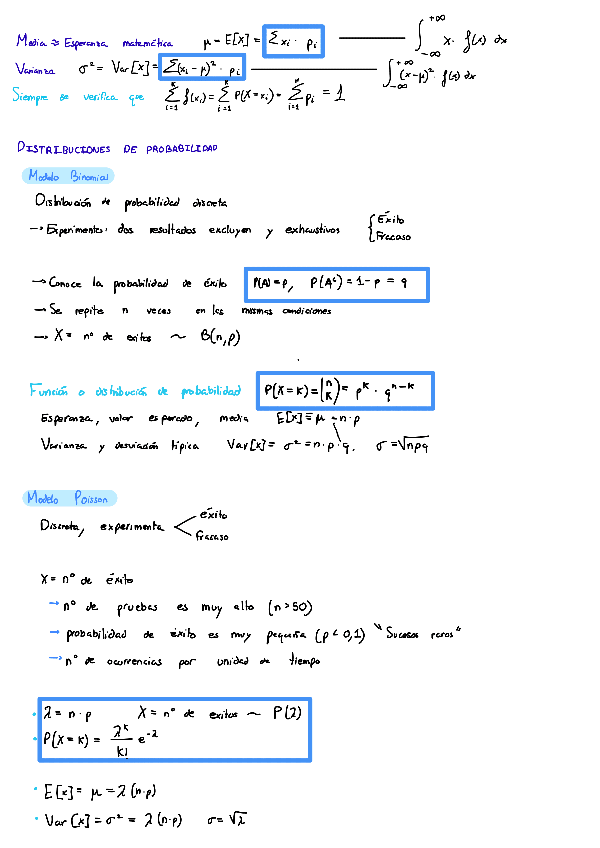 Media ≈ Esperanza matemática μ = E[X] = Σxi · pi ——— ∫_{-∞}^{+∞} x · f(x) dx
Varianza σ² = Var[X] = Σ(xi - μ)² · pi ——— ∫_{-∞}^{+∞} (x-μ)² · f(x) dx
Siempre se verifica que Σ_{i=1}^{k} f(xi) = Σ_{i=1}^{k} P(X = xi) = Σ_{i=1}^{k} pi = 1
DISTRIBUCIONES DE PROBABILIDAD
Modelo Binomial
Distribución de probabilidad discreta
→ Experimentos: dos resultados excluyen y exhaustivos { Éxito
Fracaso
→ Conoce la probabilidad de éxito P(A) = p, P(Aᶜ) = 1 - p = q
→ Se repite n veces en las mismas condiciones
→ X = nº de exitos ~ B(n,p)
Función o distribución de probabilidad P(X = k) = (n k) = p^k · q^{n-k}
Esperanza, valor esperado, media E[x] = μ = n · p
Varianza y desviación típica Var[x] = σ² = n · p · q, σ = √npq
Modelo Poisson
Discreta, experimenta < éxito
fracaso
X = nº de éxito
→ nº de pruebas es muy alto (n > 50)
→ probabilidad de éxito es muy pequeña (p < 0,1) "Sucesos raros"
→ nº de ocurrencias por unidad de tiempo
• λ = n · p X = nº de exitos ~ P(λ)
• P(X = k) = λ^k / k! e^{-λ}
• E[x] = μ = λ (n·p)
• Var [x] = σ² = λ (n·p) σ = √λ